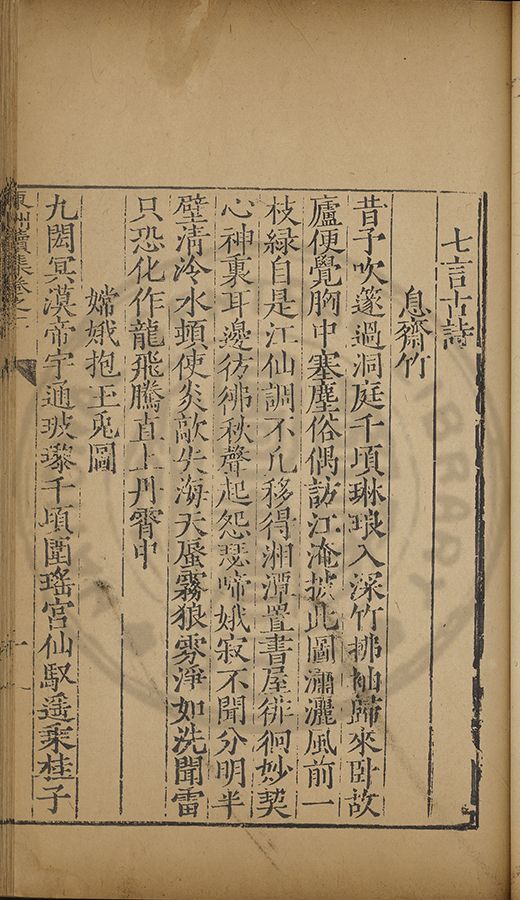 七言古詩
息齋竹
昔予吹篴過洞庭千頃琳琅入深竹拂袖歸來卧故
廬便覺胸中塞塵俗偶訪江淹披此圖瀟灑風前一
枝綠自是江仙調不凡移得湘潭置書屋徘徊妙契
心神裏耳邊彷彿秋聲起怨瑟啼娥寂不聞分明半
壁清冷水頓使炎歊失海天蜃霧狼雰淨如洗聞雷
只恐化作龍飛騰直上丹霄中
嫦娥抱玉兎圖
九閎冥漠帝宇通玻瓈千頃圍瑤宮仙馭遥乘桂子
續集卷之